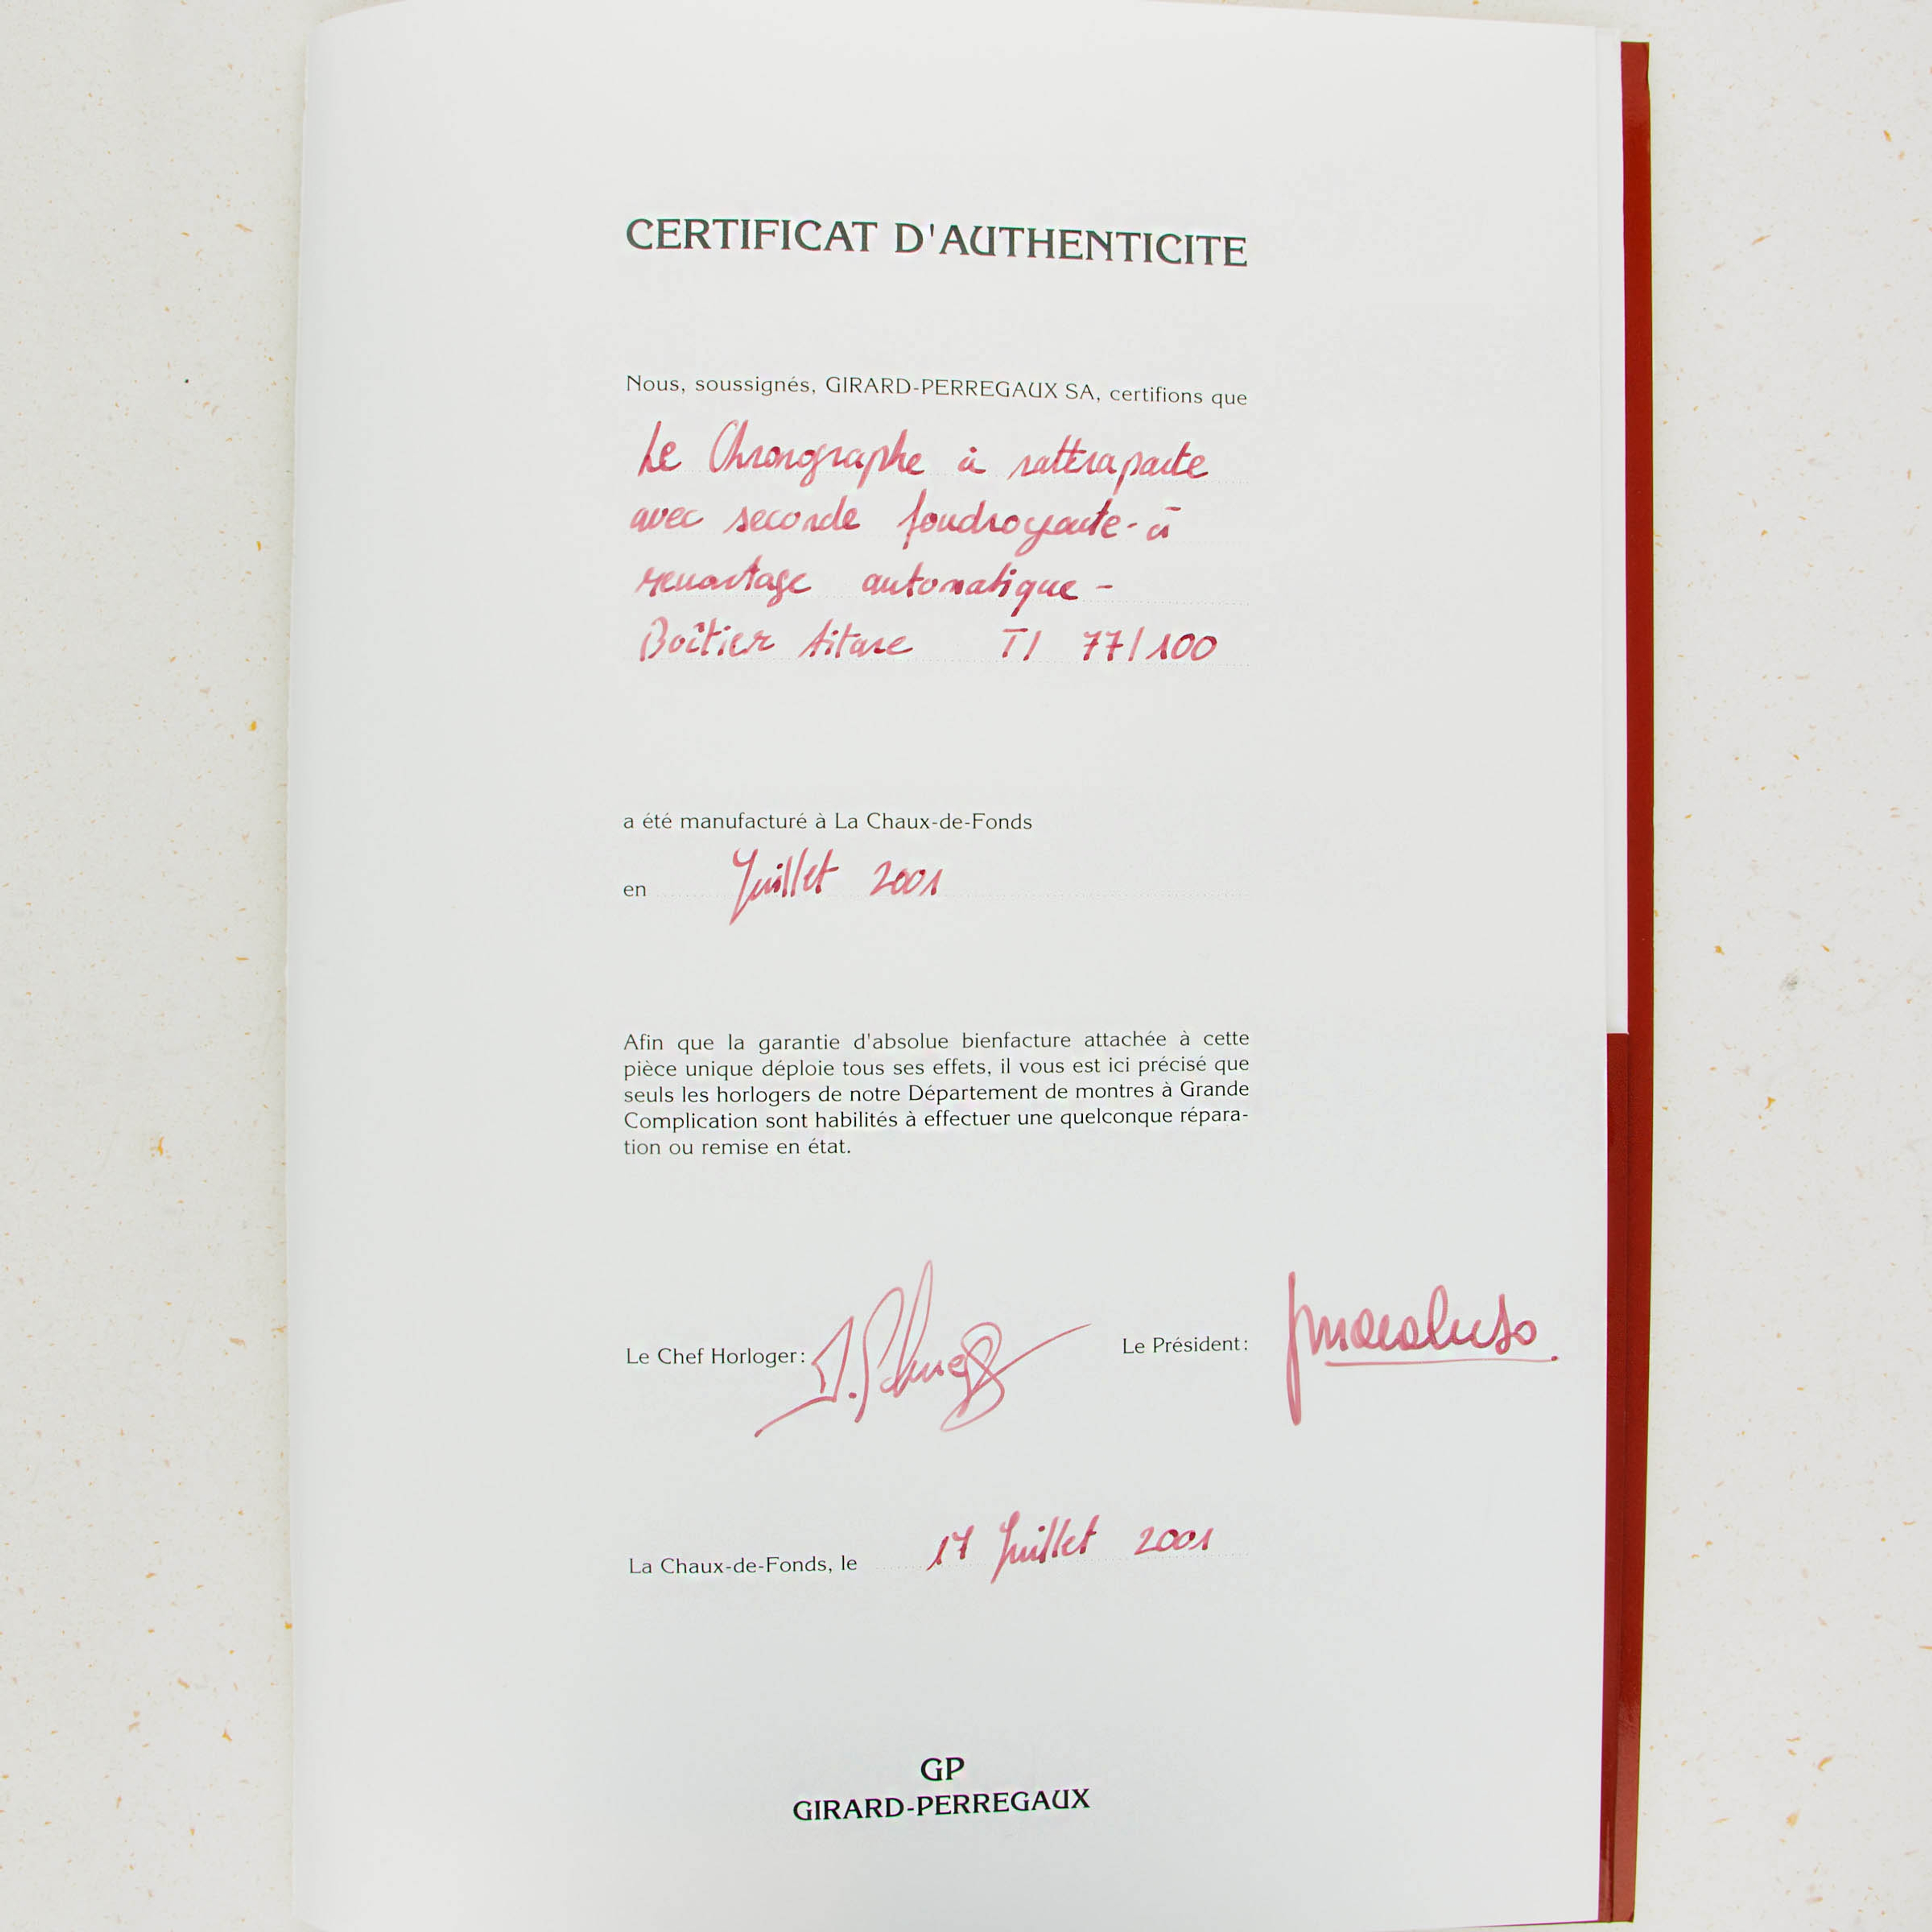 CERTIFICAT D'AUTHENTICITE
Nous, soussignés, GIRARD-PERREGAUX SA, certifions que
Le Chronographe à rattrapante
avec seconde foudroyante - à
remontage automatique -
Boîtier titane TI 77/100
a été manufacturé à La Chaux-de-Fonds
en Juillet 2001
Afin que la garantie d'absolue bienfacture attachée à cette
pièce unique déploie tous ses effets, il vous est ici précisé que
seuls les horlogers de notre Département de montres à Grande
Complication sont habilités à effectuer une quelconque répara-
tion ou remise en état.
Le Chef Horloger: Le Président:
La Chaux-de-Fonds, le 17 Juillet 2001
GP
GIRARD-PERREGAUX